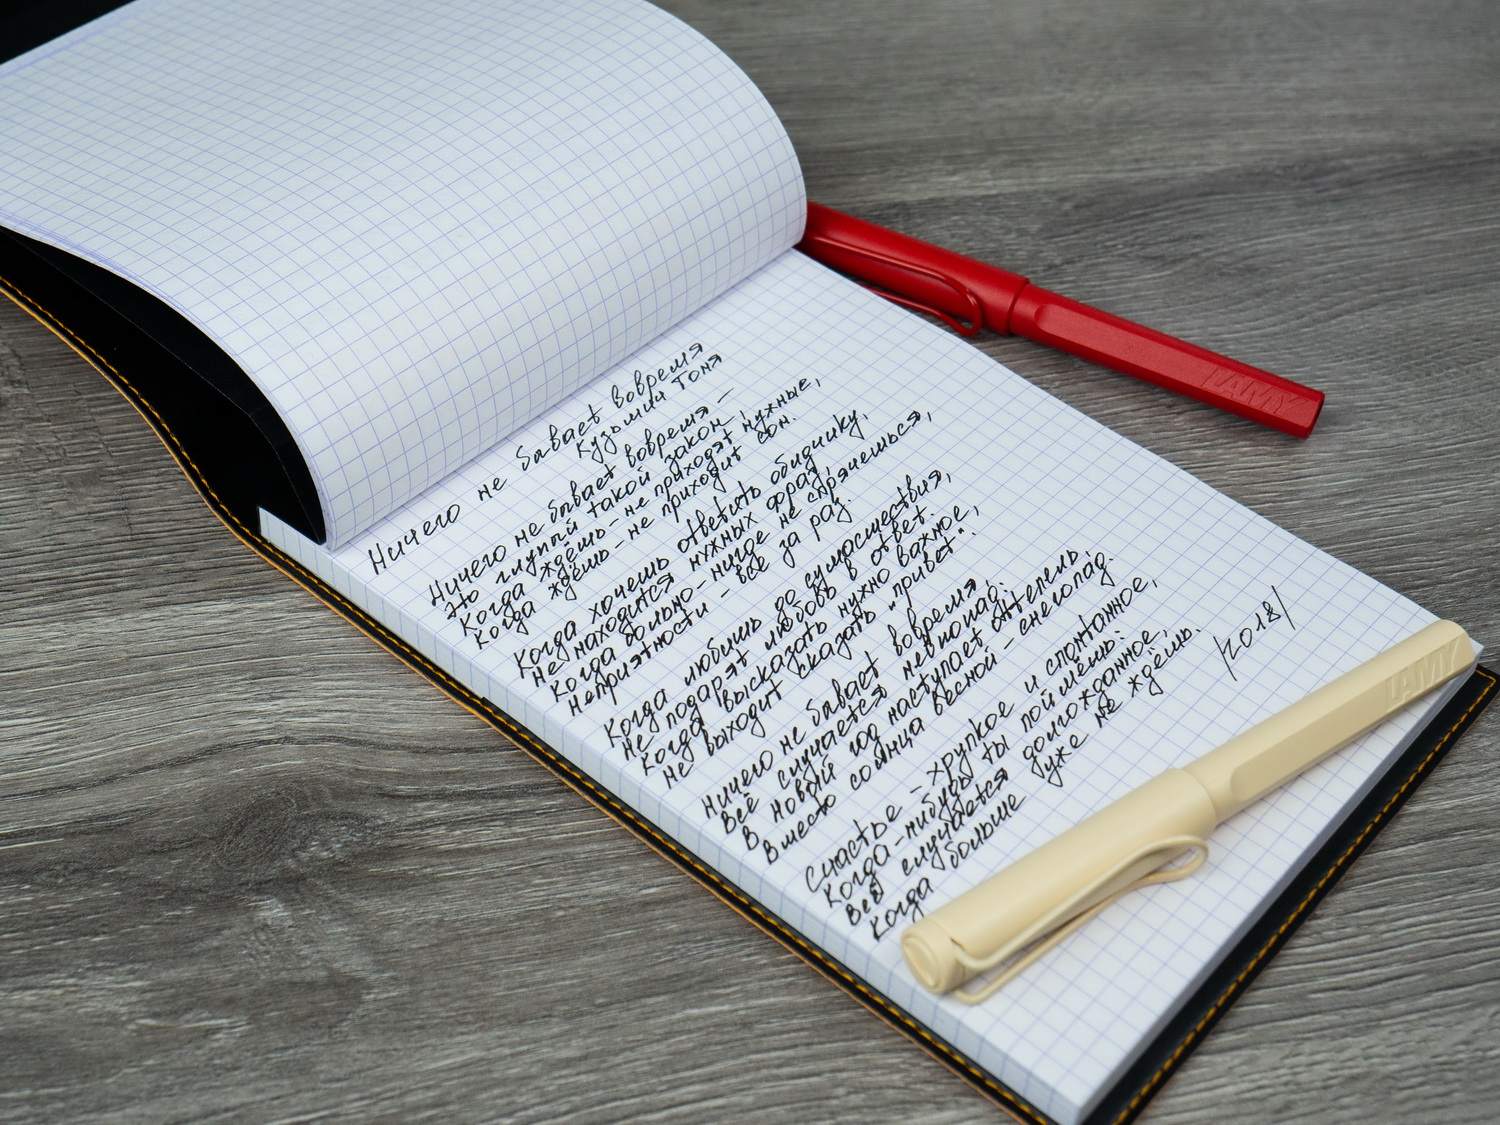 Ничего не бывает вовремя
Кузьмин Тоня
Ничего не бывает вовремя –
Это глупый такой закон,
Когда ждёшь – не приходят нужные,
Когда ждёшь – не приходит сон.
Когда хочешь ответить обидчику,
Не находится нужных фраз,
Когда больно – нигде не спрячешься,
Неприятности – все за раз.
Когда любишь до сумасшествия,
Не подарят любовь в ответ.
Когда высказать нужно важное,
Не выходит сказать „привет“.
Ничего не бывает вовремя,
Всё случается невпопад:
В Новый год наступает оттепель,
Вместо солнца весной – снегопад.
Счастье – хрупкое и спонтанное,
Когда-нибудь ты поймёшь:
Всё случается долгожданное,
Когда больше уже не ждёшь.
/2018/
LAMY
LAMY